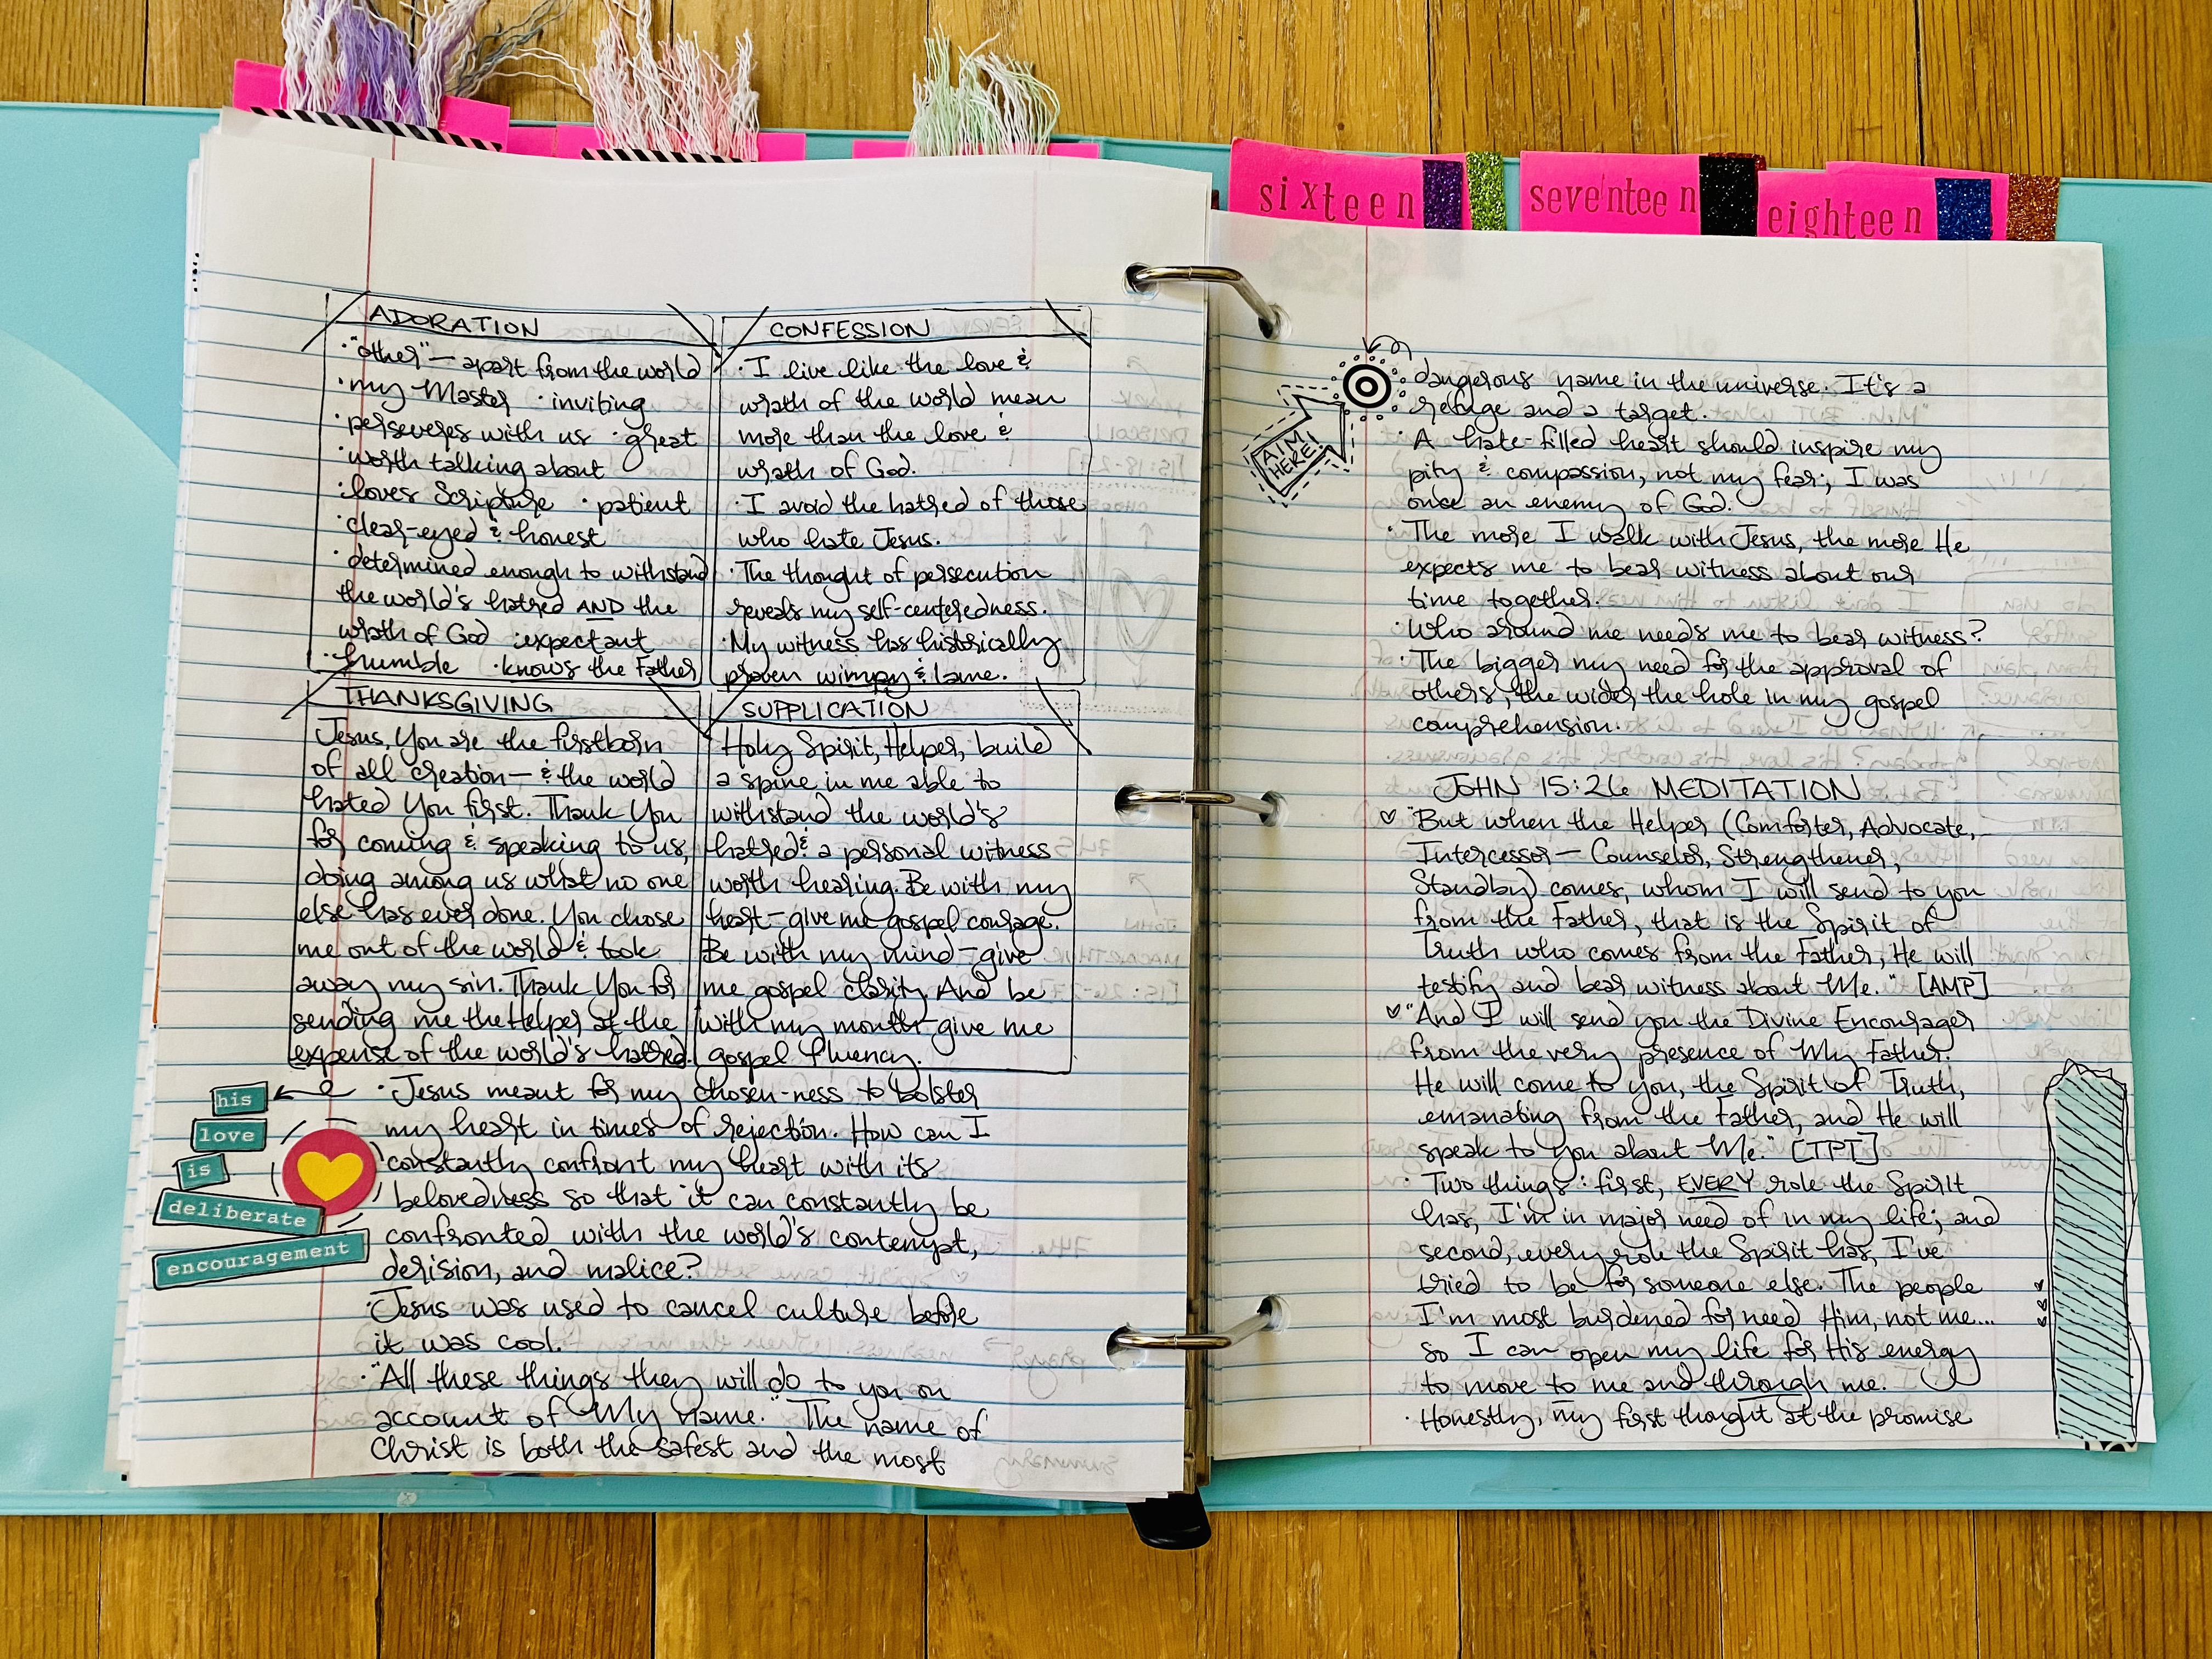 sixteen
seventeen
eighteen
ADORATION
· "other" — apart from the world
· my Master · inviting
· perseveres with us · great
· worth talking about
· loves Scripture · patient
· clear-eyed & honest
· determined enough to withstand
the world's hatred AND the
wrath of God · expectant
· humble · knows the Father
CONFESSION
· I live like the love &
wrath of the world mean
more than the love &
wrath of God.
· I avoid the hatred of those
who hate Jesus.
· The thought of persecution
reveals my self-centeredness.
· My witness has historically
proven wimpy & lame.
THANKSGIVING
Jesus, You are the firstborn
of all creation — & the world
hated You first. Thank You
for coming & speaking to us,
doing among us what no one
else has ever done. You chose
me out of the world & took
away my sin. Thank You for
sending me the Helper at the
expense of the world's hatred.
SUPPLICATION
Holy Spirit, Helper, build
a spine in me able to
withstand the world's
hatred & a personal witness
worth hearing. Be with my
heart — give me gospel courage.
Be with my mind — give
me gospel clarity. And be
with my mouth — give me
gospel fluency.
his
love
is
deliberate
encouragement
· Jesus meant for my chosen-ness to bolster
my heart in times of rejection. How can I
constantly confront my heart with its
belovedness so that it can constantly be
confronted with the world's contempt,
derision, and malice?
· Jesus was used to cancel culture before
it was cool.
· "All these things they will do to you on
account of My name." The name of
Christ is both the safest and the most
AIM
HERE!
dangerous name in the universe. It's a
refuge and a target.
· A hate-filled heart should inspire my
pity & compassion, not my fear; I was
once an enemy of God.
· The more I walk with Jesus, the more He
expects me to bear witness about our
time together.
· Who around me needs me to bear witness?
· The bigger my need for the approval of
others, the wider the hole in my gospel
comprehension.
JOHN 15:26 MEDITATION
♡ "But when the Helper (Comforter, Advocate,
Intercessor — Counselor, Strengthener,
Standby) comes, whom I will send to you
from the Father, that is the Spirit of
Truth who comes from the Father, He will
testify and bear witness about Me." [AMP]
♡ "And I will send you the Divine Encourager
from the very presence of My Father.
He will come to you, the Spirit of Truth,
emanating from the Father, and He will
speak to you about Me." [TPT]
· Two things: first, EVERY role the Spirit
has, I'm in major need of in my life; and
second, every role the Spirit has, I've
tried to be for someone else. The people
I'm most burdened for need Him, not me...
so I can open my life for His energy
to move to me and through me.
· Honestly, my first thought at the promise